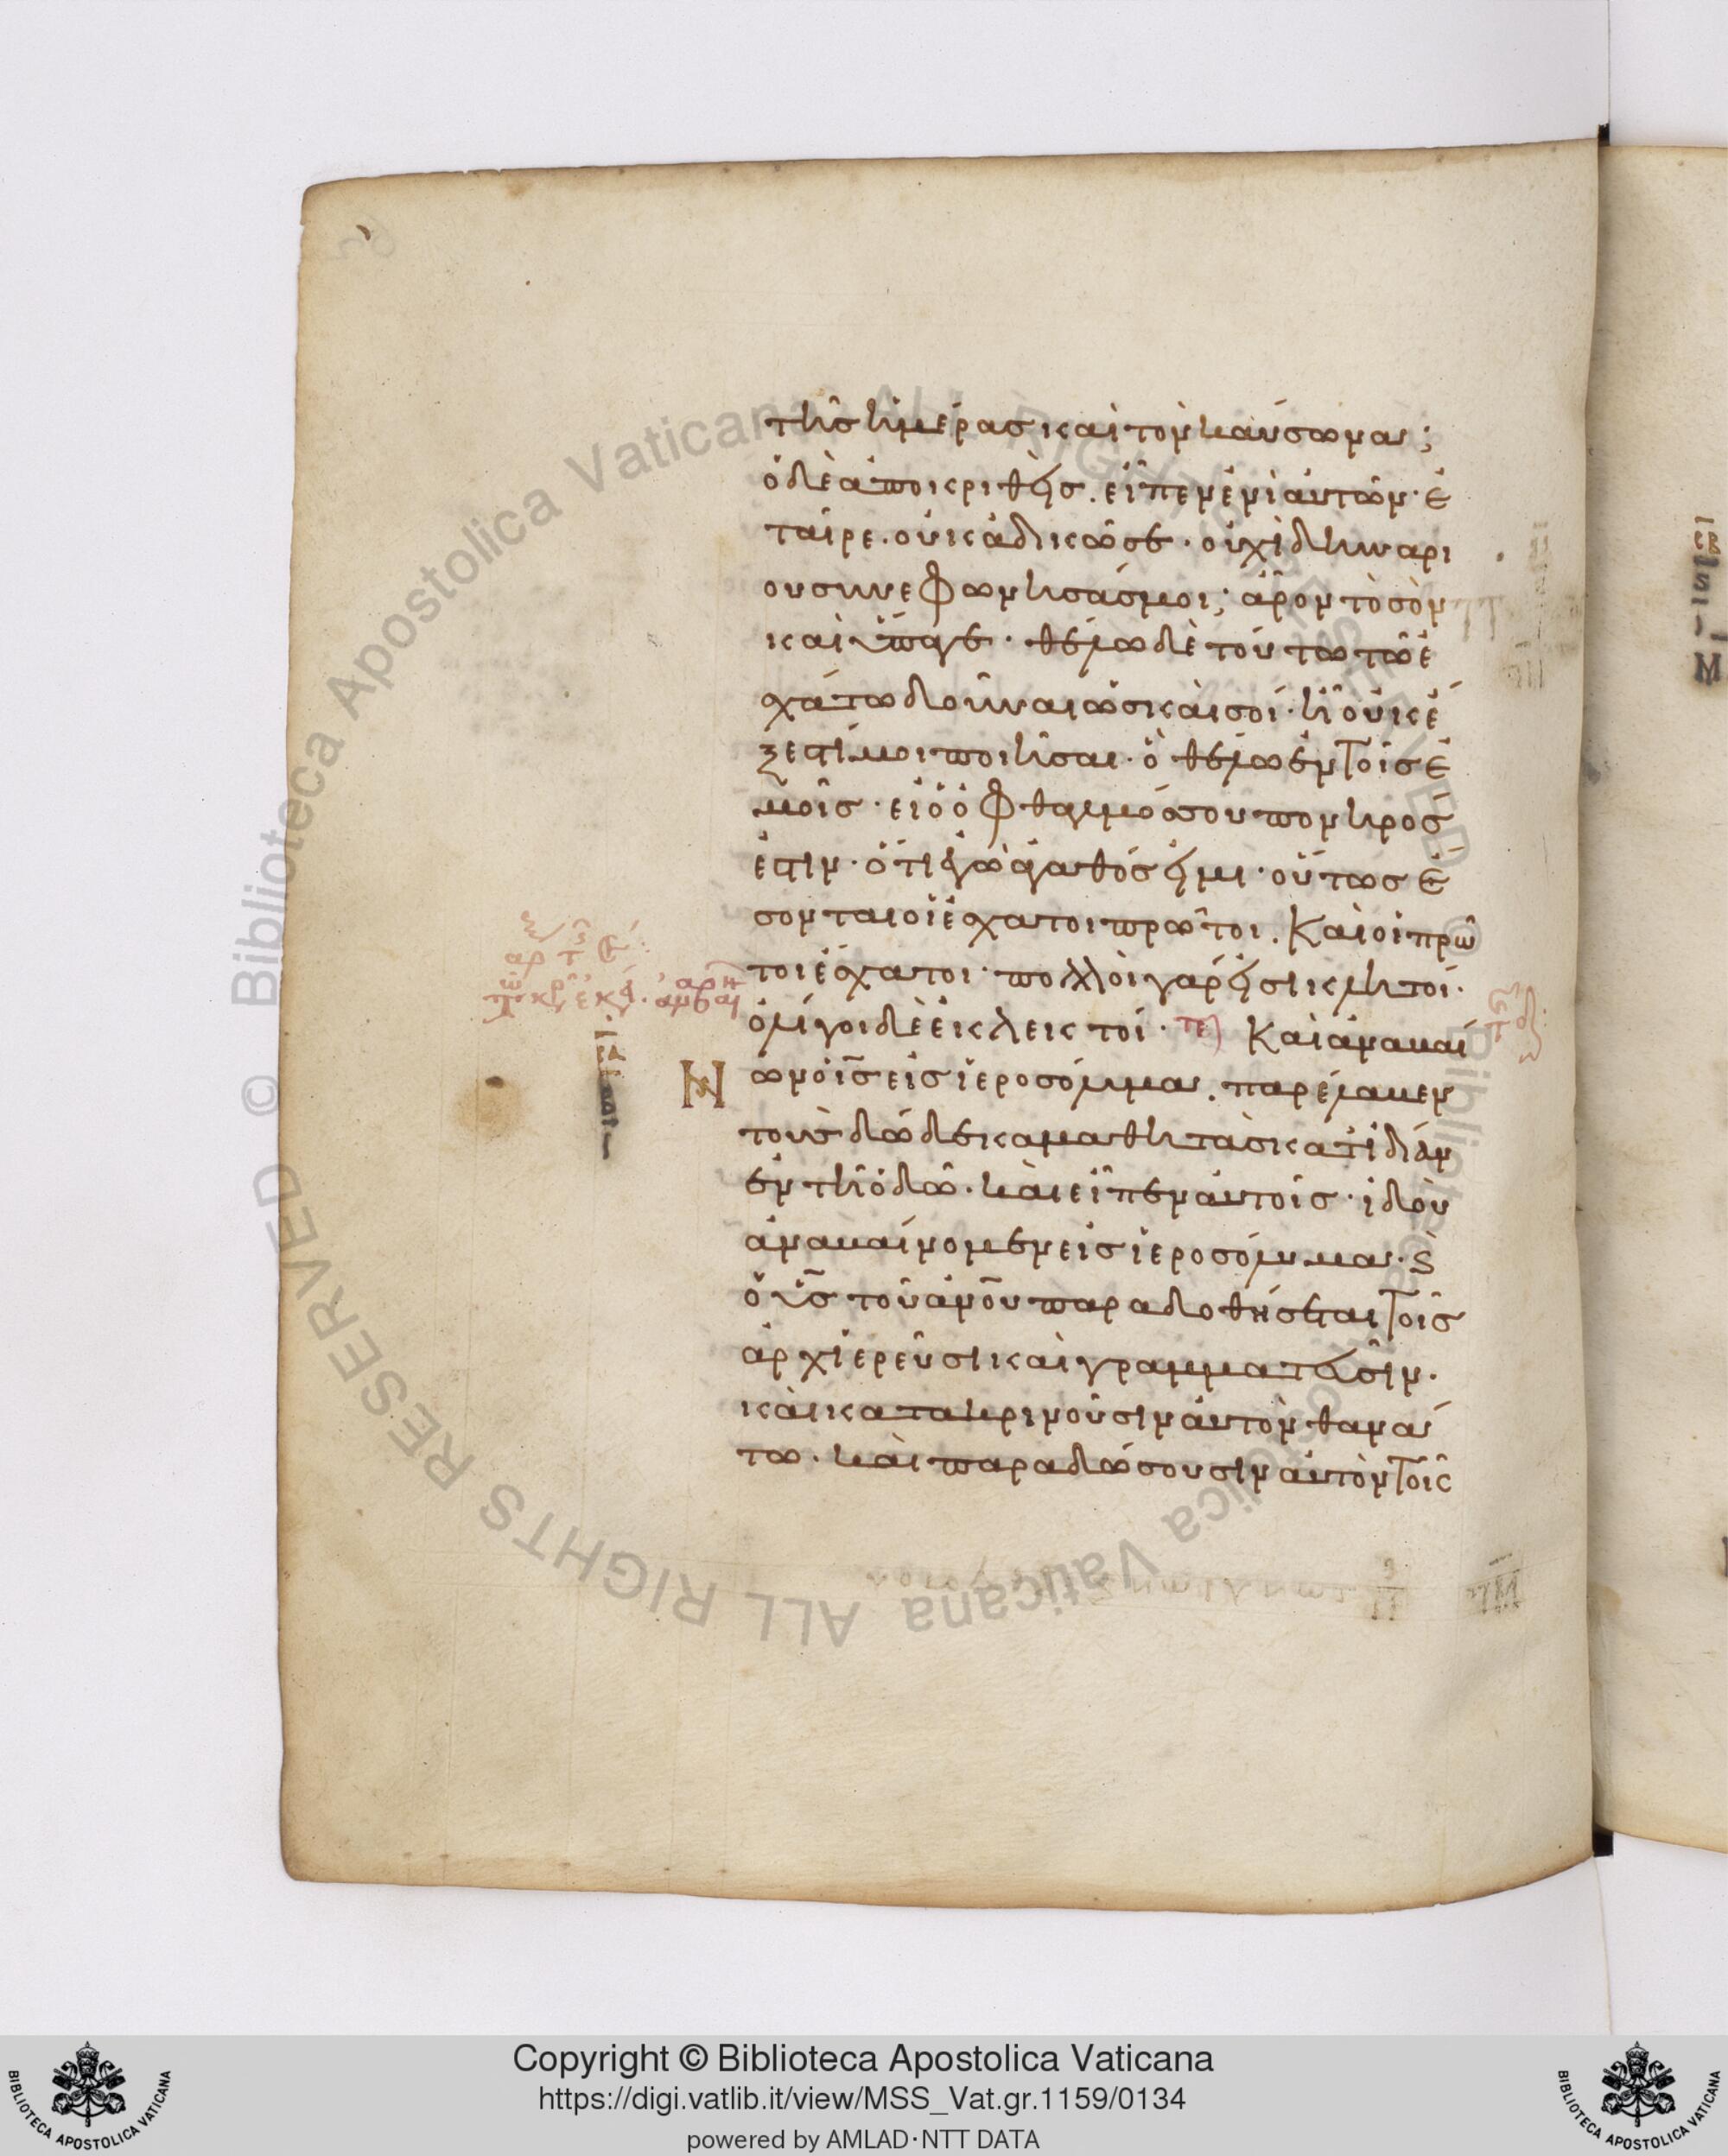 τῆς ἡμέρας καὶ τὸν καύσωνα;
ὁ δὲ ἀποκριθεὶς. εἶπεν ἑνὶ αὐτῶν· ἑ
ταῖρε. οὐκ ἀδικῶ σε· οὐχὶ δηναρί
ου συνεφώνησάς μοι; ἆρον τὸ σὸν
καὶ ὕπαγε· θέλω δὲ τούτω τῶ ἐ
σχάτω δοῦναι ὡς καὶ σοί· ἢ οὐκ ἔ
ξεστί μοι ποιῆσαι· ὃ θέλω ἐν τοῖς ἐ
μοῖς· εἰ ὁ ὀφθαλμός σου πονηρός
ἐστιν· ὅτι ἐγὼ ἀγαθός εἰμι· οὕτως ἔ
σονται οἱ ἔσχατοι πρῶτοι. Καὶ οἱ πρῶ
τοι ἔσχατοι· πολλοὶ γάρ εἰσι κλητοί·
ὀλίγοι δὲ ἐκλεκτοί· τε Καὶ ἀναβαί
νων ὁ ις εἰς ἱεροσόλυμα. παρέλαβεν
τοὺς δώδεκα μαθητὰς κατιδίαν
ἐν τῆ ὁδῶ· καὶ εἶπεν αὐτοῖς· ἰδοὺ
ἀναβαίνομεν εἰς ἱεροσόλυμα· ϗ
ὁ υς τοῦ ανου παραδοθήσεται τοῖς
ἀρχιερεῦσι καὶ γραμματεῦσιν.
καὶ κατακρινοῦσιν αὐτὸν θανά
τω· καὶ παραδώσουσιν αὐτὸν τοῖς
© Biblioteca Apostolica Vaticana ALL RIGHTS RESERVED
Copyright © Biblioteca Apostolica Vaticana
https://digi.vatlib.it/view/MSS_Vat.gr.1159/0134
powered by AMLAD·NTT DATA
BIBLIOTECA APOSTOLICA VATICANA
BIBLIOTECA APOSTOLICA VATICANA